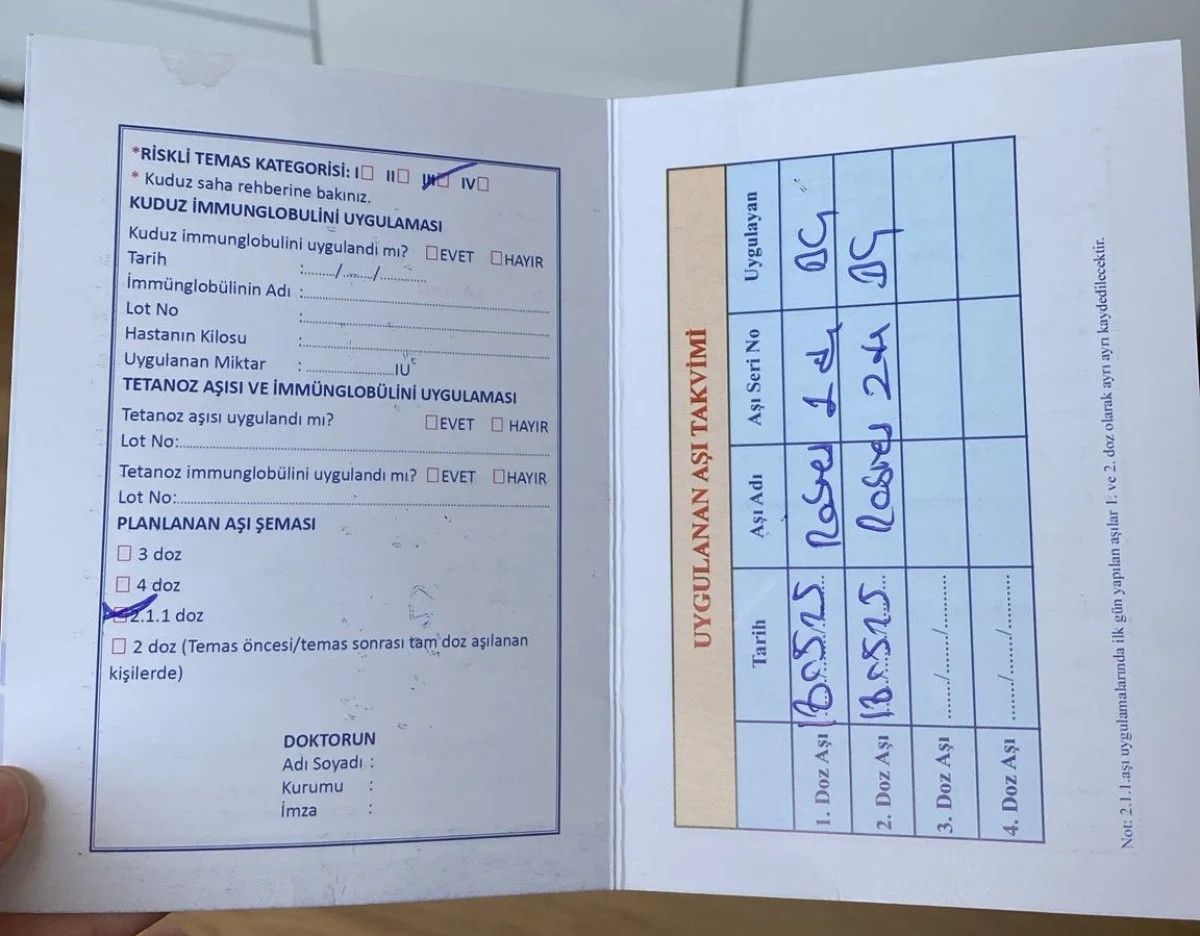 *RİSKLİ TEMAS KATEGORİSİ: I☐ II☐ III☐ IV☐
* Kuduz saha rehberine bakınız.
KUDUZ İMMUNGLOBULİNİ UYGULAMASI
Kuduz immunglobulini uygulandı mı? ☐EVET ☐HAYIR
Tarih :......./......./...........
İmmünglobülinin Adı :
Lot No :
Hastanın Kilosu :
Uygulanan Miktar : ....................IU
TETANOZ AŞISI VE İMMÜNGLOBÜLİNİ UYGULAMASI
Tetanoz aşısı uygulandı mı? ☐EVET ☐ HAYIR
Lot No:
Tetanoz immunglobülini uygulandı mı? ☐EVET ☐HAYIR
Lot No:
PLANLANAN AŞI ŞEMASI
☐ 3 doz
☐ 4 doz
☑ 2.1.1 doz
☐ 2 doz (Temas öncesi/temas sonrası tam doz aşılanan
kişilerde)
DOKTORUN
Adı Soyadı :
Kurumu :
İmza :
UYGULANAN AŞI TAKVİMİ
Tarih Aşı Adı Aşı Seri No Uygulayan
1. Doz Aşı
2. Doz Aşı
3. Doz Aşı ....../......./............
4. Doz Aşı ....../......./............
Not: 2.1.1.aşı uygulamalarında ilk gün yapılan aşılar 1. ve 2. doz olarak ayrı ayrı kaydedilecektir.